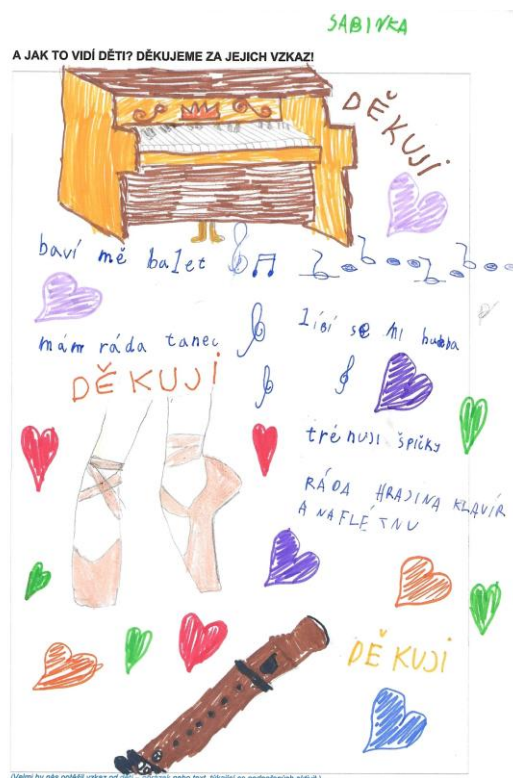 SABINKA
A JAK TO VIDÍ DĚTI? DĚKUJEME ZA JEJICH VZKAZ!
DĚKUJI
baví mě balet
mám ráda tanec
líbí se mi hudba
DĚKUJI
trénuji špičky
RÁDA HRAJI NA KLAVÍR
A NA FLÉTNU
DĚKUJI